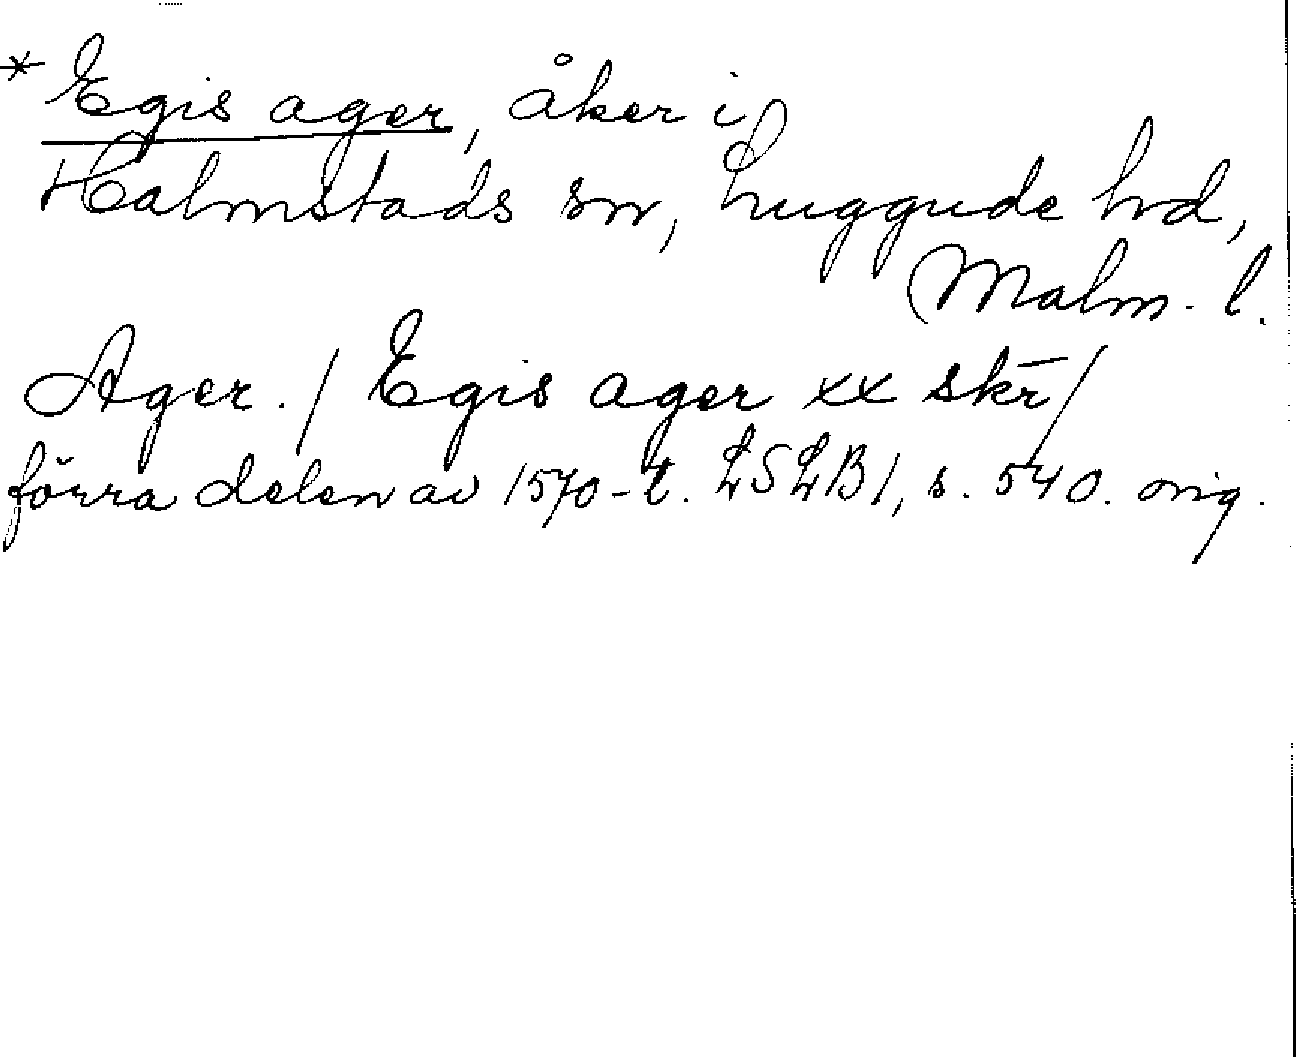 * Egis ager, åker i
Halmstads sn, Luggude hd,
Malm. l.
Ager. / Egis ager xx skr̄ /
förra delen av 1570-t. LSLB 1, s. 540. orig.